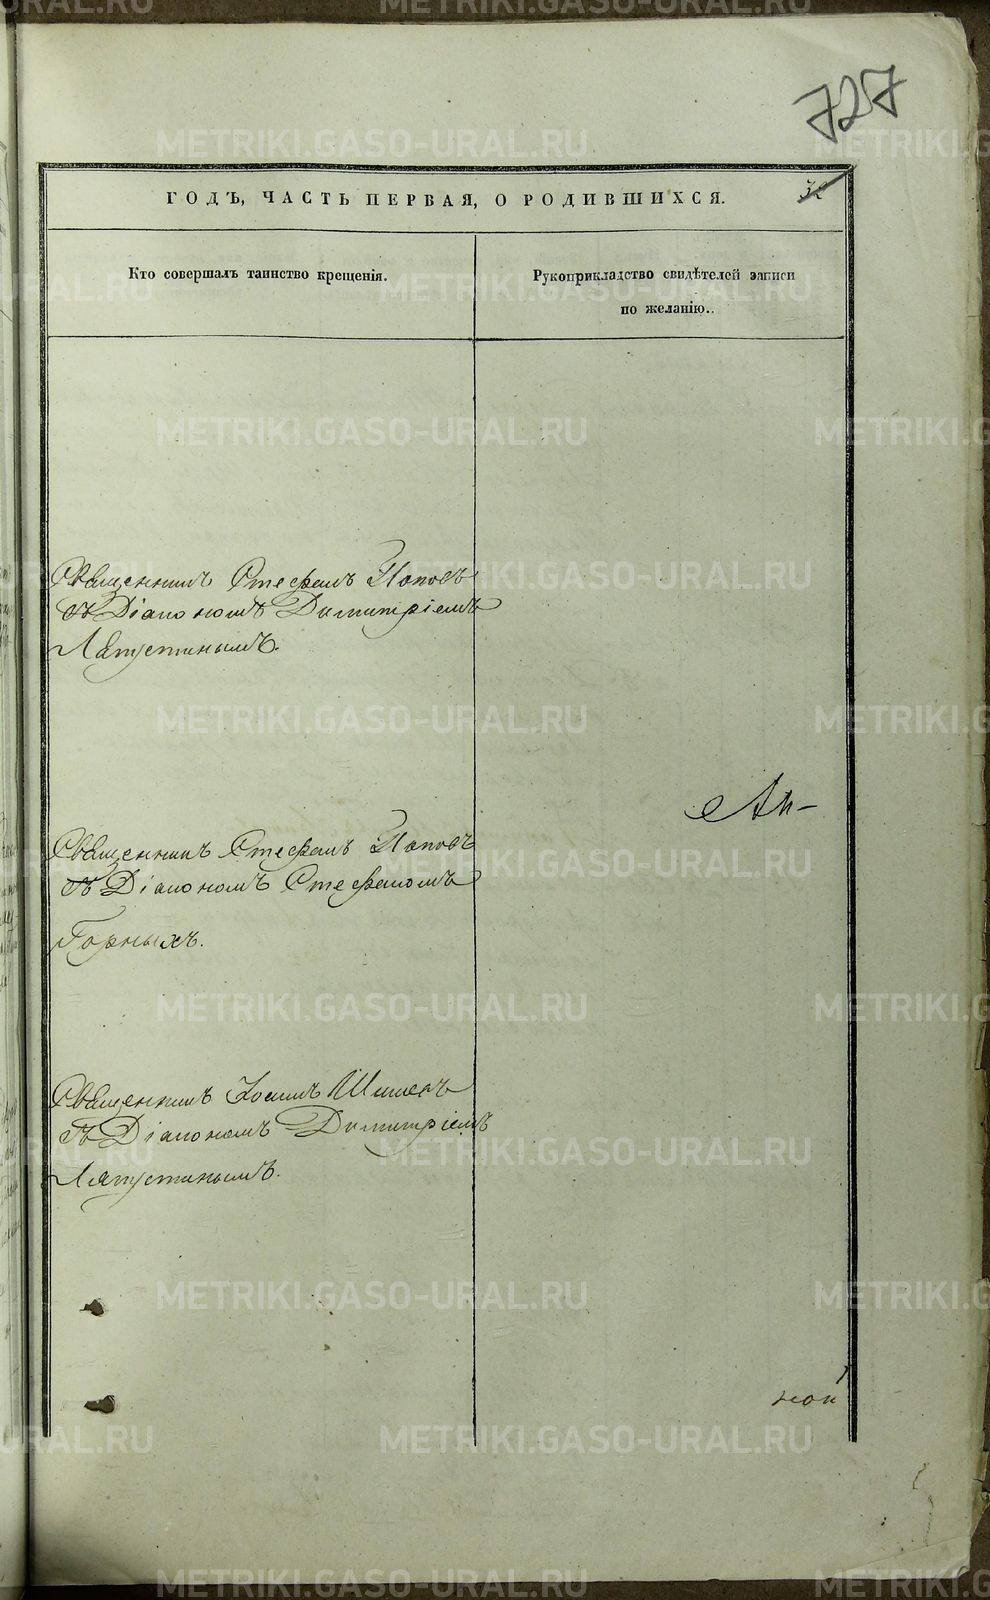 727
32
ГОДЪ, ЧАСТЬ ПЕРВАЯ, О РОДИВШИХСЯ.
Кто совершалъ таинство крещенія.
Рукоприкладство свидѣтелей записи
по желанію..
Священникъ Стефанъ Поповъ
съ Діакономъ Димитріемъ
Ляпустинымъ.
Священникъ Стефанъ Поповъ
съ Діакономъ Стефаномъ
Горныхъ.
Священникъ Іоаннъ
съ Діакономъ Димитріемъ
Ляпустинымъ.
ной
METRIKI.GASO-URAL.RU